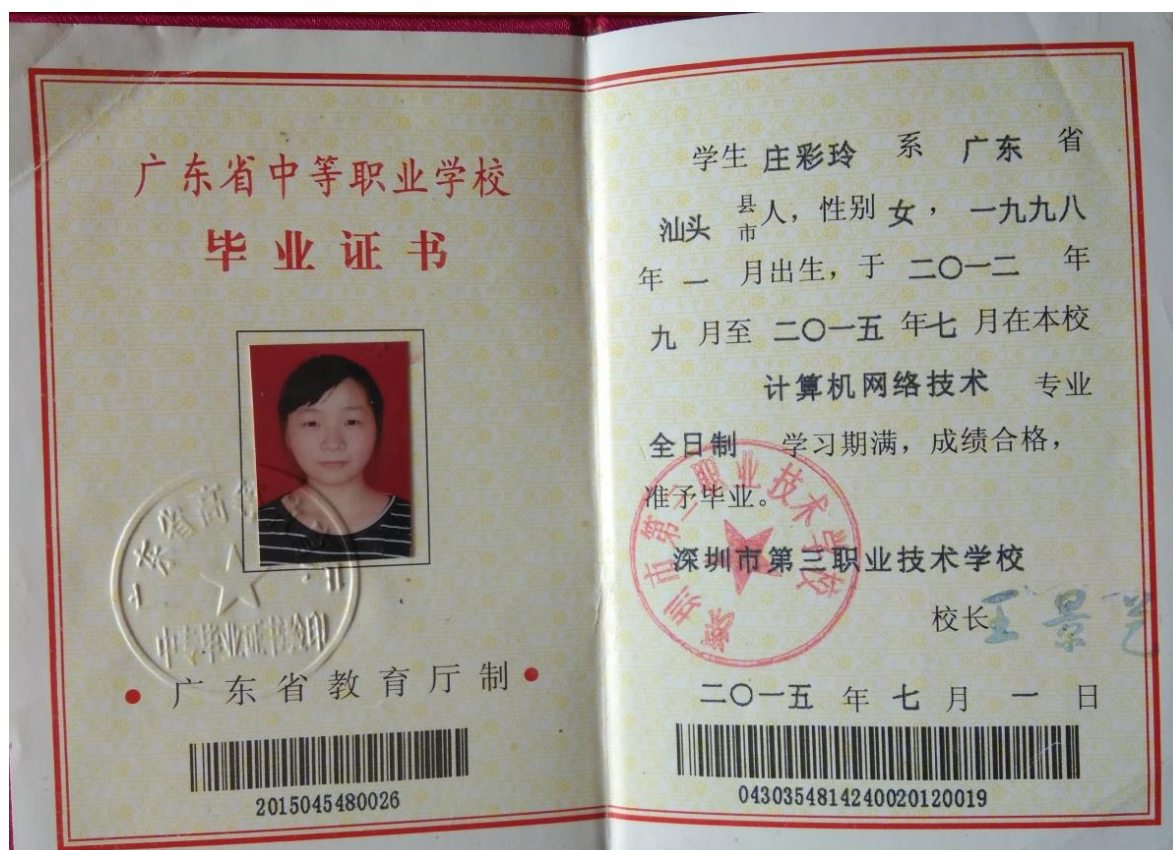 广东省中等职业学校
毕业证书
中专毕业证书签印
广东省教育厅制
2015045480026
学生 庄彩玲 系 广东 省
汕头 县市人，性别 女， 一九九八
年 一 月出生，于 二〇一二 年
九 月至 二〇一五 年 七 月在本校
计算机网络技术 专业
全日制 学习期满，成绩合格，
准予毕业。
深圳市第三职业技术学校
深圳市第三职业技术学校
校长 王景艺
二〇一五 年 七 月 一 日
0430354814240020120019